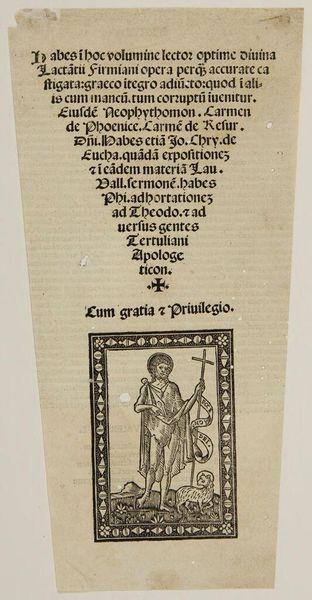 Habes ĩ hoc volumine lector optime diuina
Lactãtii Firmiani opera perq̃ꝫ accurate ca
stigata: graeco ĩtegro adiũ.to: quod ĩ ali⸗
is cum mancũ. tum corruptũ ĩuenitur.
Eiusdẽ Neophythomon. Carmen
de Phoenice. Carmẽ de Resur.
Dñi. Habes etiã Jo. Chry. de
Eucha. quãdã expositionez
⁊ ĩ eãdem materiã Lau.
Vall. sermonẽ. habes
Phi. adhortationez
ad Theodo. ⁊ ad
uersus gentes
Tertuliani
Apologe
ticon.
✠
Cum gratia ⁊ Priuilegio.